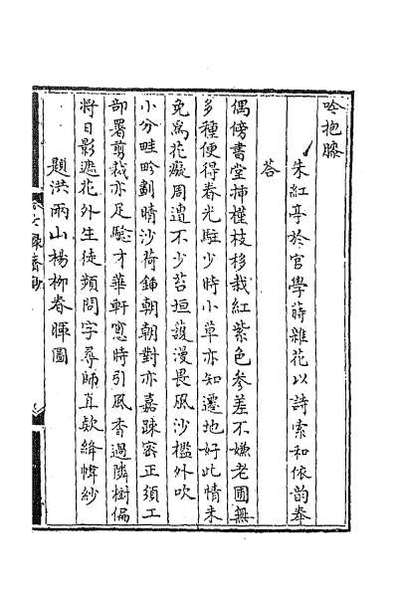 吟抱牋
朱紅亭於官學蒔雜花以詩索和依韵奉
答
偶傍書堂揷槿枝移栽紅紫色参差不嫌老圃無
多種便得春光駐少時小草亦知遷地好此情未
免為花癡周遭不少苔垣護漫畏風沙檻外吹
小分畦畛劃晴沙荷鍤朝朝對亦嘉疎密正須工
部署剪裁亦足騐才華軒窻時引風香過隣樹偏
將日影遮花外生徒頻問字尋師直欵絳帷紗
題洪雨山楊柳春暉圖